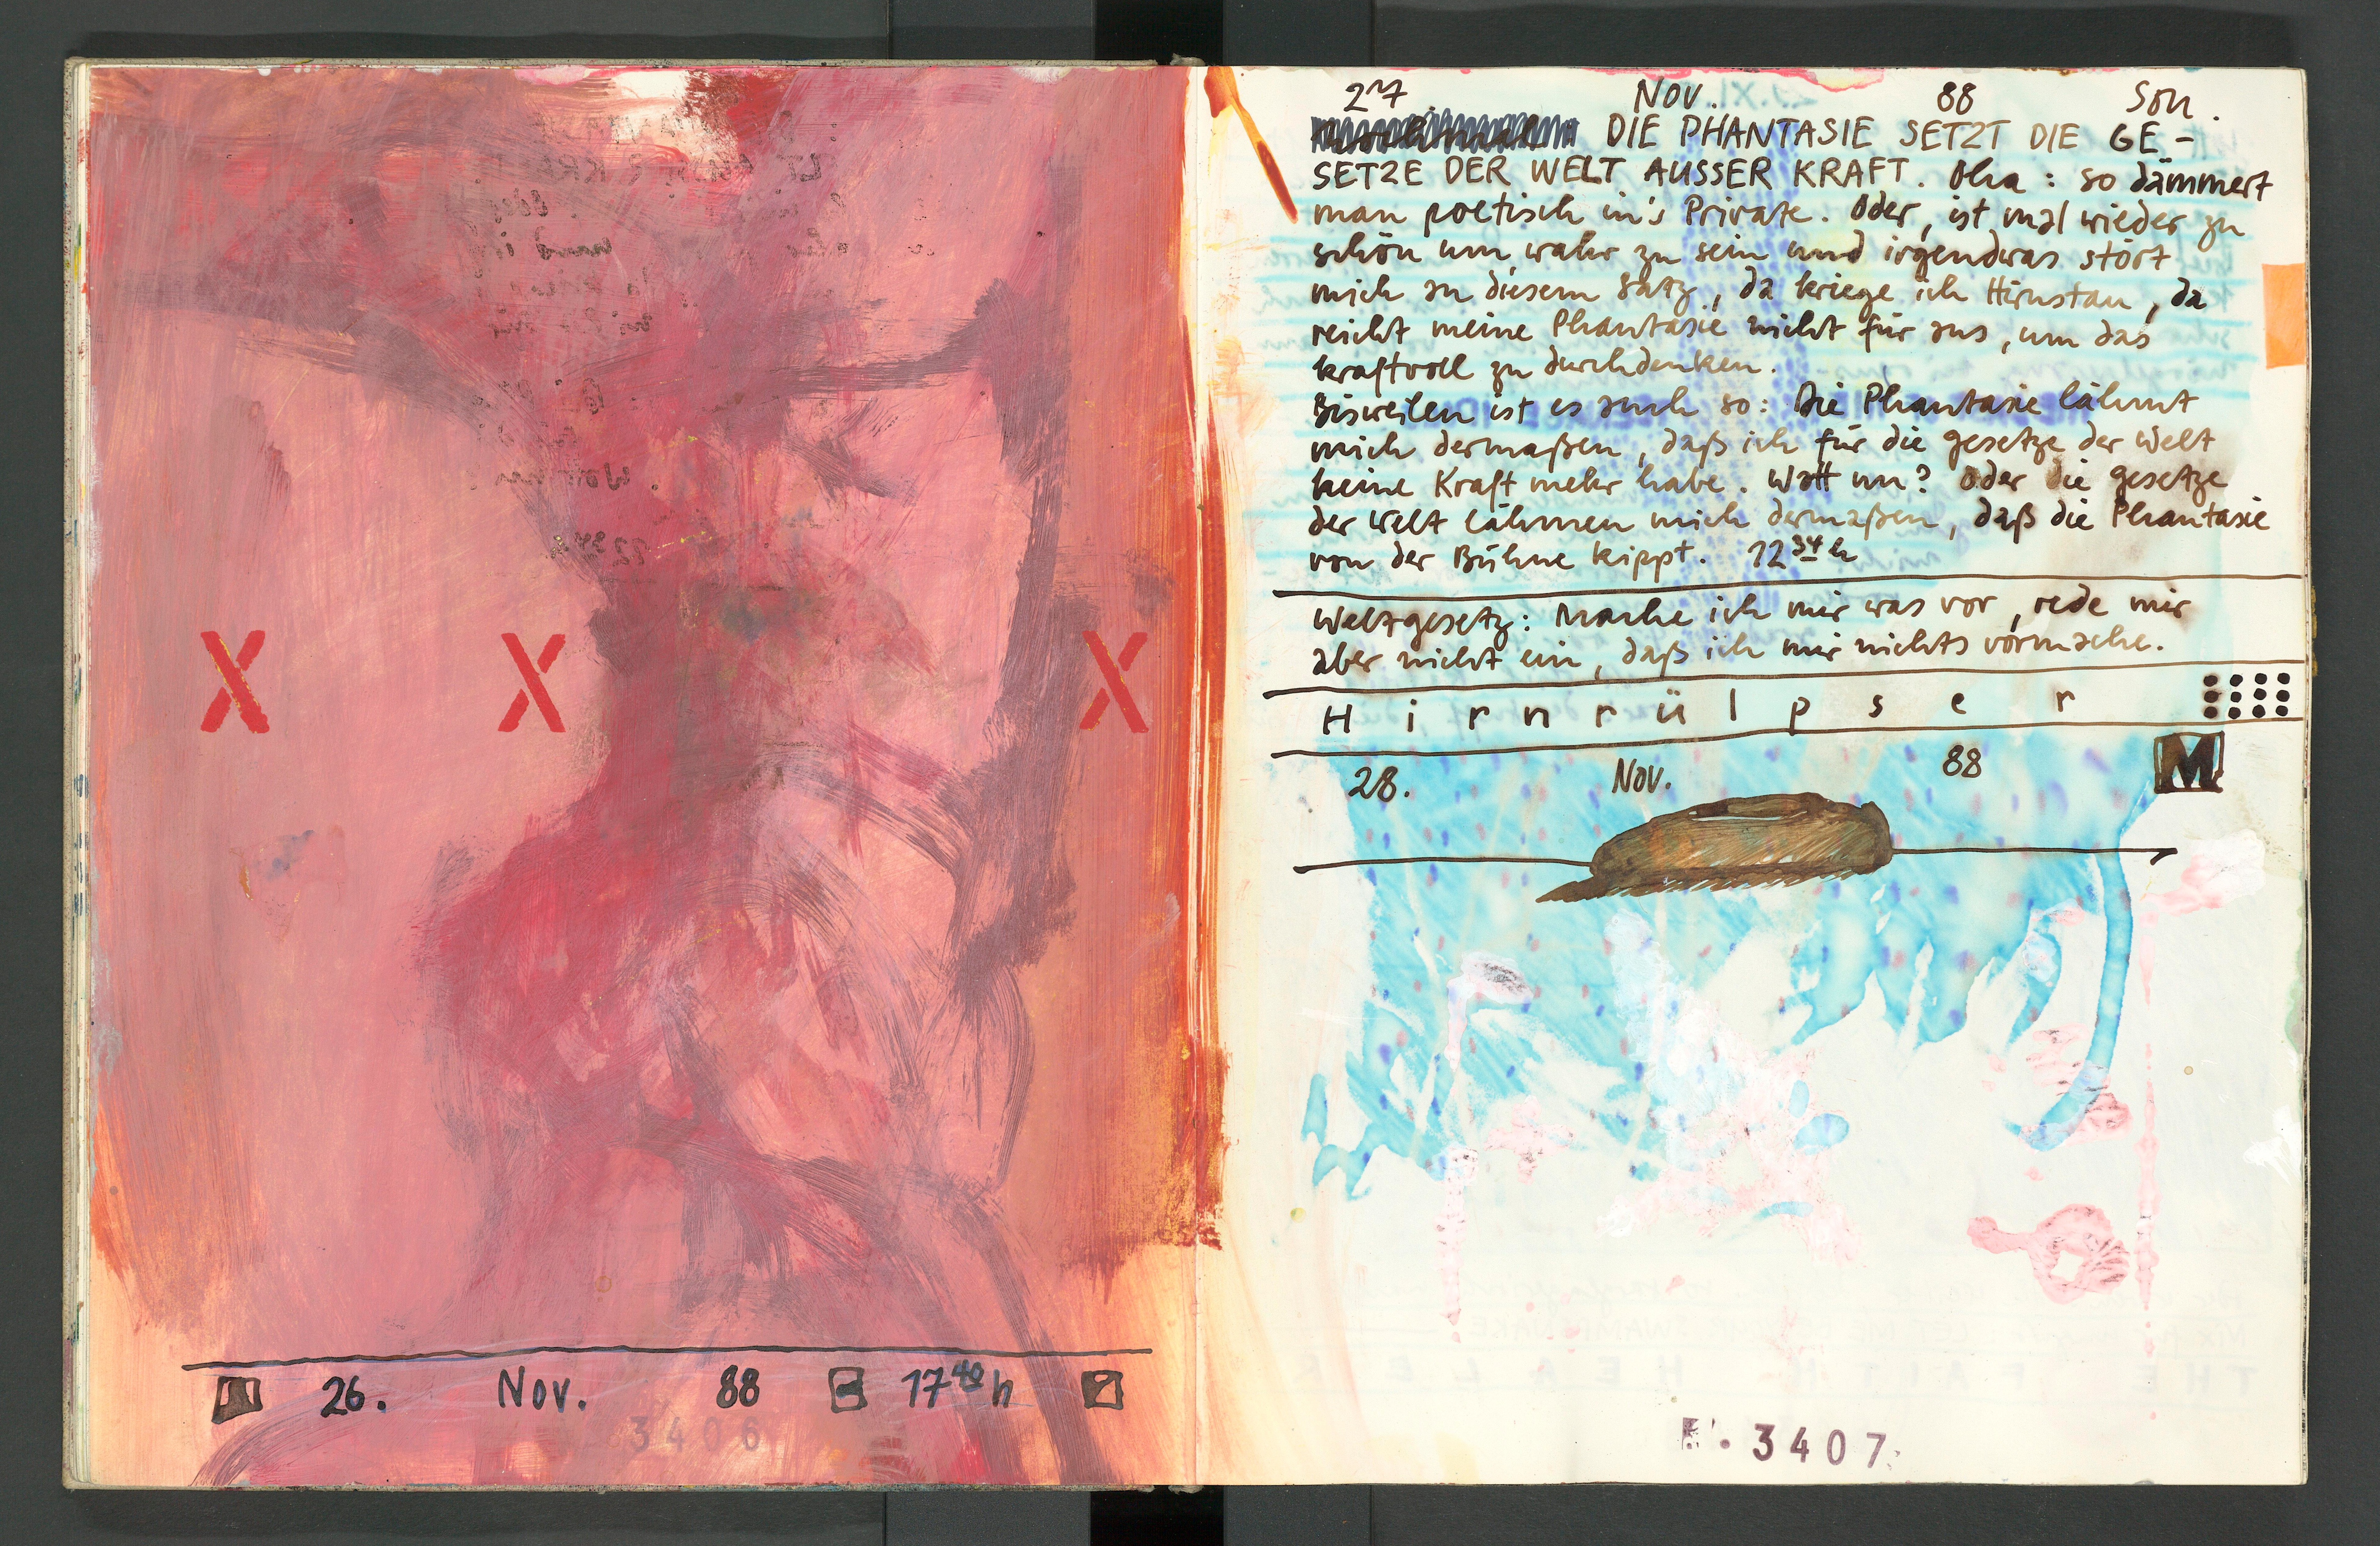 X X X
26. Nov. 88 17 40 h
3406
27. Nov. 88 Son.
DIE PHANTASIE SETZT DIE GE-
SETZE DER WELT AUSSER KRAFT. Oha: so dämmert
man poetisch in's Private. Oder, ist mal wieder zu
schön um wahr zu sein und irgendwas stört
mich an diesem Satz, da kriege ich Hirnstau, da
reicht meine Phantasie nicht für aus, um das
kraftvoll zu durchdenken.
Bisweilen ist es auch so: Die Phantasie lähmt
mich dermaßen, daß ich für die gesetze der Welt
keine Kraft mehr habe. Watt nu? Oder die gesetze
der Welt lähmen mich dermaßen, daß die Phantasie
von der Bühne kippt. 12 34 h
Weltgesetz: Mache ich mir was vor, rede mir
aber nicht ein, daß ich mir nichts vormache.
Hirnrülpser
28. Nov. 88 M
3407